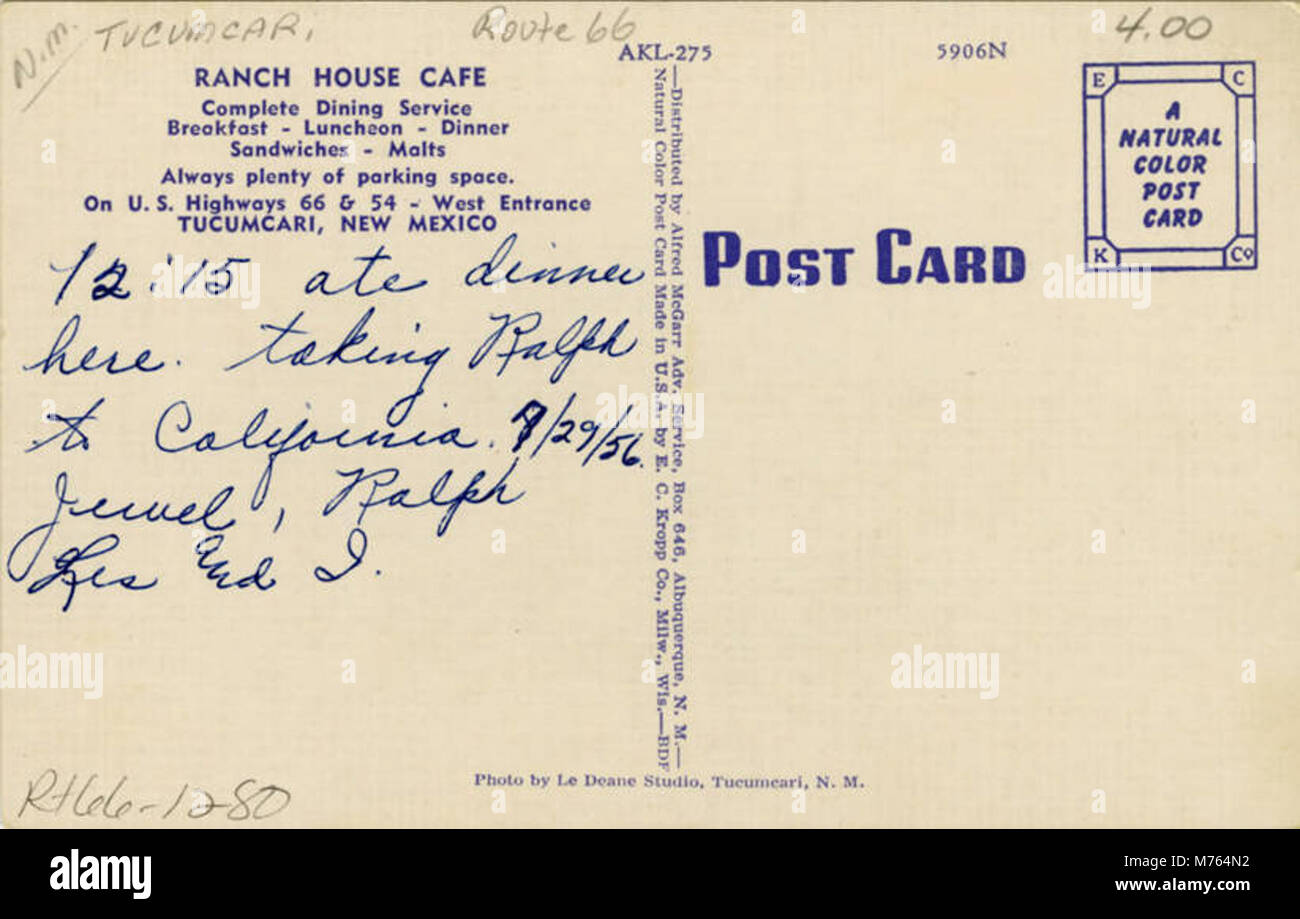 N.M.
TUCUMCARI
Route 66
4.00
AKL-275
5906N
RANCH HOUSE CAFE
Complete Dining Service
Breakfast - Luncheon - Dinner
Sandwiches - Malts
Always plenty of parking space.
On U. S. Highways 66 & 54 - West Entrance
TUCUMCARI, NEW MEXICO
12:15 ate dinner
here. taking Ralph
to California. 7/29/56.
Jewel, Ralph
Les and I.
—Distributed by Alfred McGarr Adv. Service, Box 646, Albuquerque, N. M.—
Natural Color Post Card Made in U.S.A. by E. C. Kropp Co., Milw., Wis.—BDF
POST CARD
E C
A
NATURAL
COLOR
POST
CARD
K Co
Photo by Le Deane Studio, Tucumcari, N. M.
Rt66-1280
alamy
M764N2
www.alamy.com